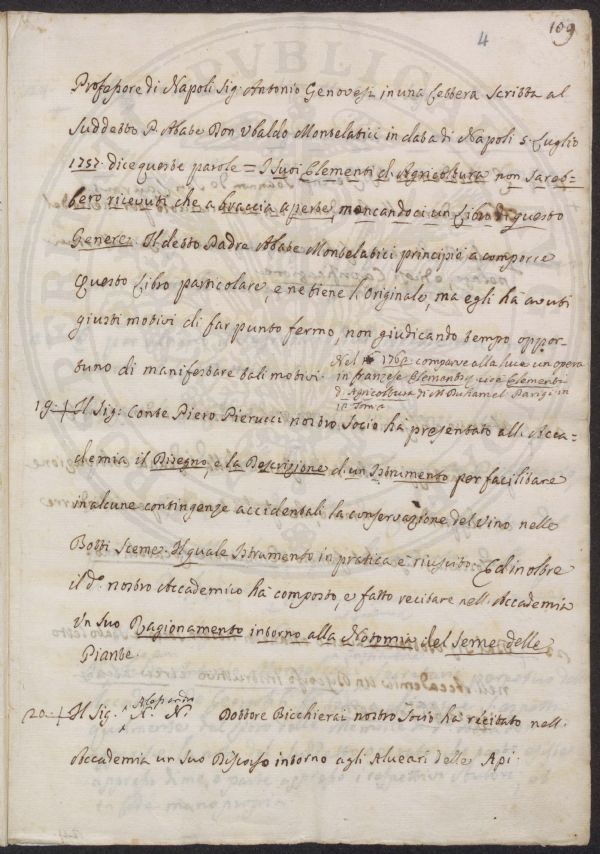 4
109
Professore di Napoli Sig: Antonio Genovesi in una lettera scritta al
suddetto P. Abate Don Ubaldo Montelatici in data di Napoli 5. Luglio
1757. dice queste parole = I suoi Elementi di Agricoltura non sareb=
bero ricevuti che a braccia aperte, mancandoci un Libro di questo
Genere. Il detto Padre Abate Montelatici principiè a comporre
questo Libro particolare, e ne tiene l'Originale, ma egli hà avuti
giusti motivi di far punto fermo, non giudicando tempo oppor=
tuno di manifestare tali motivi.
Nel 1762 comparve alla luce un opera
in francese Elementi, cioè Elementi
di Agricoltura di M. Duhamel Parigi in
Tomi
19. Il Sig: Conte Piero Pierucci nostro Socio hà presentato all'Acca=
demia il Disegno, e la Descrizione d'un Istrumento per facilitare
in alcune contingenze accidentali la conservazione del vino nelle
Botti sceme. Il quale Istrumento in pratica è riuscito: Ed inoltre
il do. nostro Accademico hà composto, e fatto recitare nell'Accademia
Un suo Ragionamento intorno alla Notomia del seme delle
Piante.
20. Il Sig. Alessandro N. N. Dottore Bicchierai nostro Socio hà recitato nell'
Accademia un suo Discorso intorno agli Alveari delle Api.